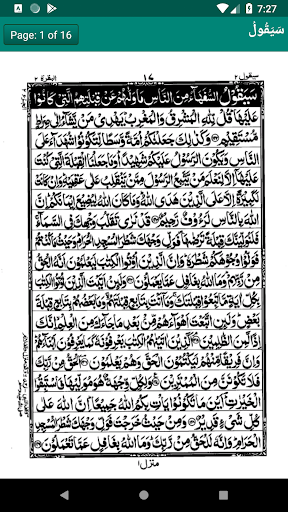 7:27
Page: 1 of 16
سَيَقُوْلُ
سيقول ٢
١٧
البقرة ٢
سَيَقُوْلُ السُّفَهَآءُ مِنَ النَّاسِ مَا وَلّٰىهُمْ عَنْ قِبْلَتِهِمُ الَّتِيْ كَانُوْا
عَلَيْهَا قُلْ لِّلّٰهِ الْمَشْرِقُ وَالْمَغْرِبُ يَهْدِيْ مَنْ يَّشَآءُ اِلٰى صِرَاطٍ
مُّسْتَقِيْمٍ وَكَذٰلِكَ جَعَلْنٰكُمْ اُمَّةً وَّسَطًا لِّتَكُوْنُوْا شُهَدَآءَ عَلَى
النَّاسِ وَيَكُوْنَ الرَّسُوْلُ عَلَيْكُمْ شَهِيْدًا وَمَا جَعَلْنَا الْقِبْلَةَ الَّتِيْ كُنْتَ
عَلَيْهَا اِلَّا لِنَعْلَمَ مَنْ يَّتَّبِعُ الرَّسُوْلَ مِمَّنْ يَّنْقَلِبُ عَلٰى عَقِبَيْهِ وَاِنْ كَانَتْ
لَكَبِيْرَةً اِلَّا عَلَى الَّذِيْنَ هَدَى اللّٰهُ وَمَا كَانَ اللّٰهُ لِيُضِيْعَ اِيْمَانَكُمْ اِنَّ
اللّٰهَ بِالنَّاسِ لَرَءُوْفٌ رَّحِيْمٌ قَدْ نَرٰى تَقَلُّبَ وَجْهِكَ فِي السَّمَآءِ
فَلَنُوَلِّيَنَّكَ قِبْلَةً تَرْضٰىهَا فَوَلِّ وَجْهَكَ شَطْرَ الْمَسْجِدِ الْحَرَامِ وَحَيْثُ
مَا كُنْتُمْ فَوَلُّوْا وُجُوْهَكُمْ شَطْرَهٗ وَاِنَّ الَّذِيْنَ اُوْتُوا الْكِتٰبَ لَيَعْلَمُوْنَ اَنَّهُ الْحَقُّ
مِنْ رَّبِّهِمْ وَمَا اللّٰهُ بِغَافِلٍ عَمَّا يَعْمَلُوْنَ وَلَئِنْ اَتَيْتَ الَّذِيْنَ اُوْتُوا الْكِتٰبَ
بِكُلِّ اٰيَةٍ مَّا تَبِعُوْا قِبْلَتَكَ وَمَآ اَنْتَ بِتَابِعٍ قِبْلَتَهُمْ وَمَا بَعْضُهُمْ بِتَابِعٍ قِبْلَةَ
بَعْضٍ وَلَئِنِ اتَّبَعْتَ اَهْوَآءَهُمْ مِّنْ بَعْدِ مَا جَآءَكَ مِنَ الْعِلْمِ اِنَّكَ
اِذًا لَّمِنَ الظّٰلِمِيْنَ اَلَّذِيْنَ اٰتَيْنٰهُمُ الْكِتٰبَ يَعْرِفُوْنَهٗ كَمَا يَعْرِفُوْنَ اَبْنَآءَهُمْ
وَاِنَّ فَرِيْقًا مِّنْهُمْ لَيَكْتُمُوْنَ الْحَقَّ وَهُمْ يَعْلَمُوْنَ اَلْحَقُّ مِنْ رَّبِّكَ
فَلَا تَكُوْنَنَّ مِنَ الْمُمْتَرِيْنَ وَلِكُلٍّ وِّجْهَةٌ هُوَ مُوَلِّيْهَا فَاسْتَبِقُوا
الْخَيْرٰتِ اَيْنَ مَا تَكُوْنُوْا يَاْتِ بِكُمُ اللّٰهُ جَمِيْعًا اِنَّ اللّٰهَ عَلٰى
كُلِّ شَيْءٍ قَدِيْرٌ وَمِنْ حَيْثُ خَرَجْتَ فَوَلِّ وَجْهَكَ شَطْرَ الْمَسْجِدِ
الْحَرَامِ وَاِنَّهٗ لَلْحَقُّ مِنْ رَّبِّكَ وَمَا اللّٰهُ بِغَافِلٍ عَمَّا تَعْمَلُوْنَ
منزل ١